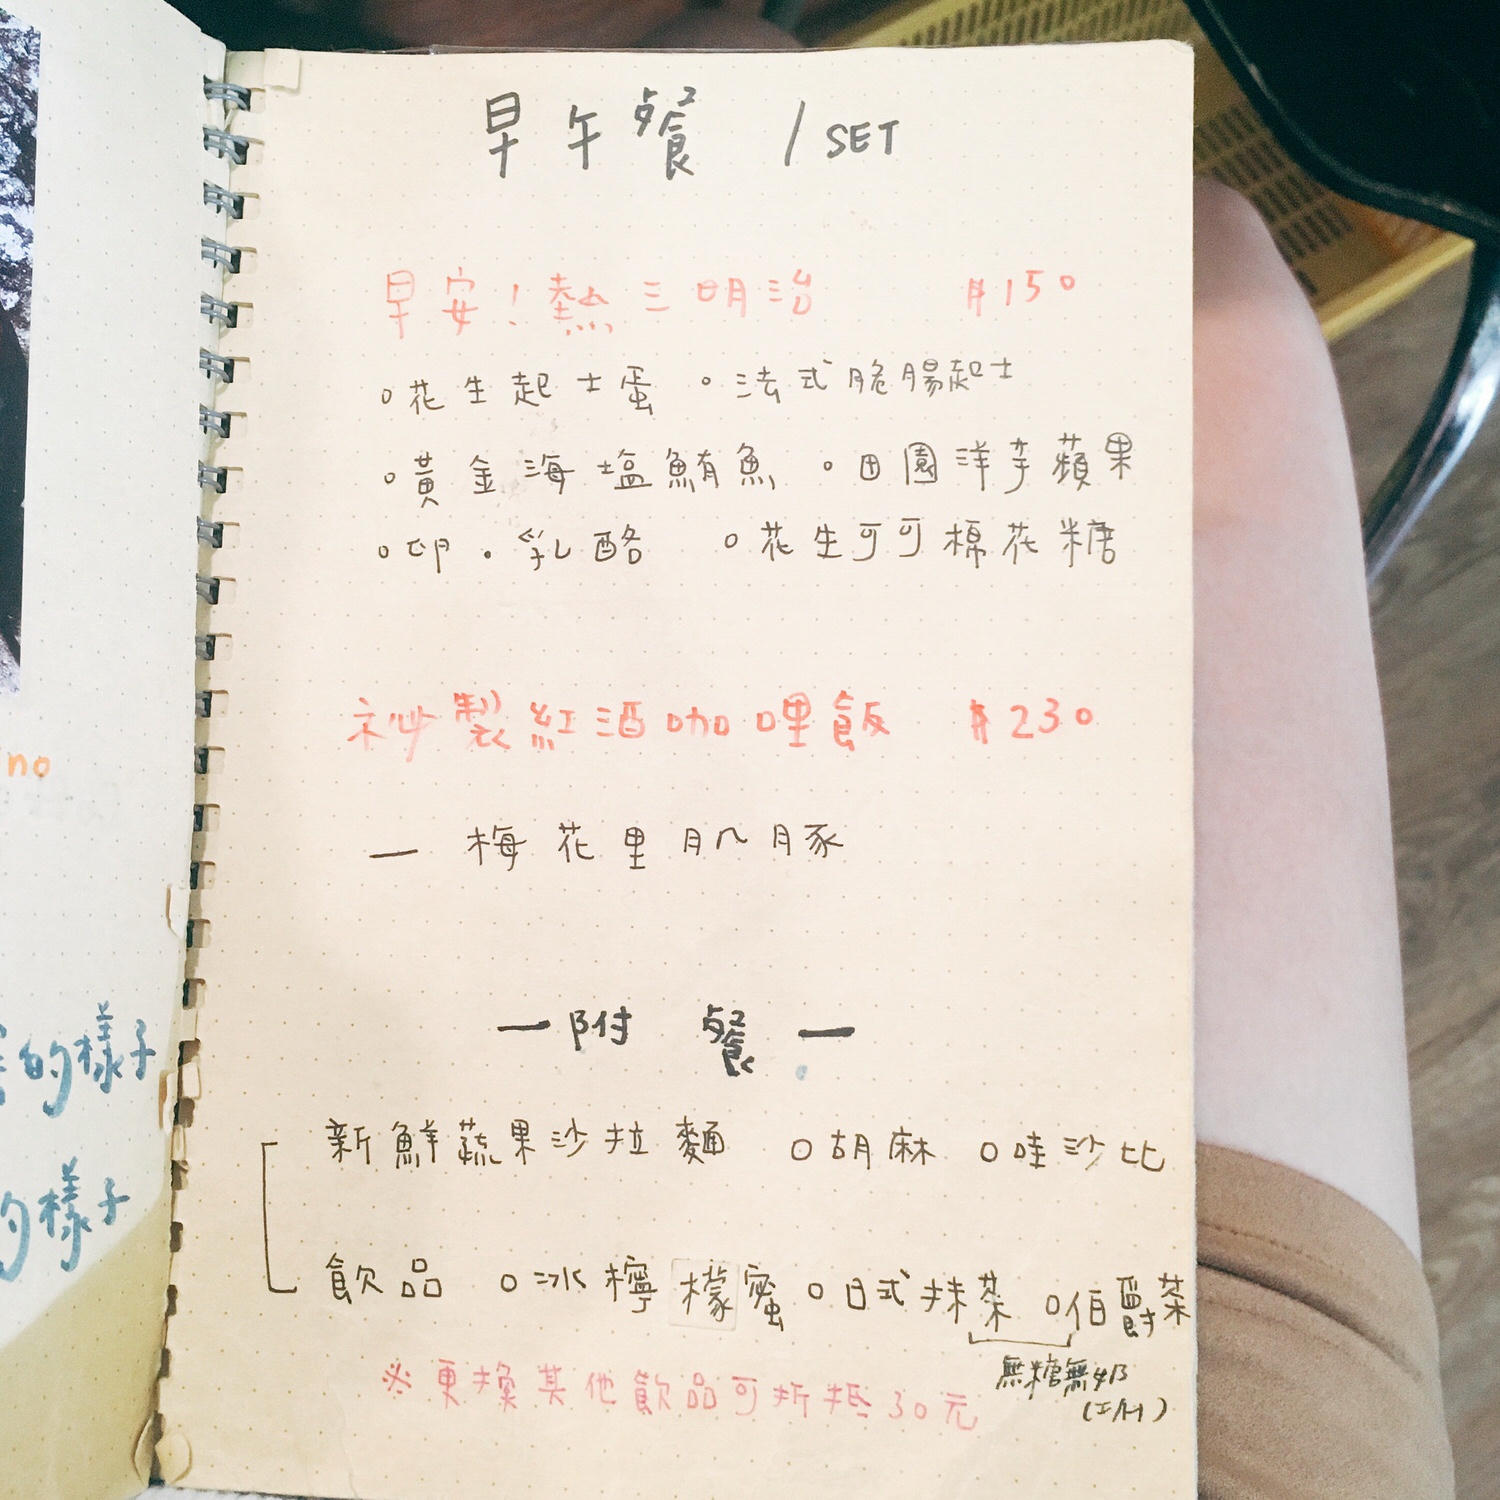 早午餐 / SET
早安!熱三明治 $150
○花生起士蛋 ○法式脆腸起士
○黃金海塩鮪魚 ○田園洋芋蘋果
○卬.乳酪 ○花生可可棉花糖
祕製紅酒咖哩飯 $230
— 梅花里肌豚
— 附餐 —
新鮮蔬果沙拉麵 ○胡麻 ○哇沙比
飲品 ○冰檸檬蜜 ○日式抹茶 ○伯爵茶
無糖無奶
(I/H)
※更換其他飲品可折抵30元
no
的樣子
的樣子